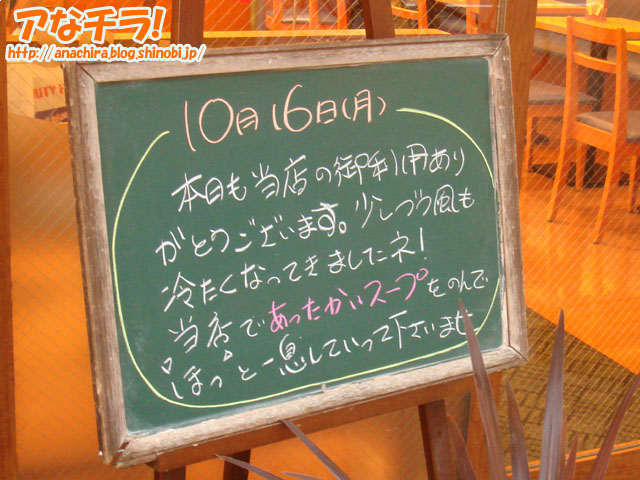 アなチラ!
http://anachira.blog.shinobi.jp/
10月16日(月)
本日も当店の御利用あり
がとうございます。少しづつ風も
冷たくなってきましたネ!
当店であったかいスープをのんで
ほっと一息していって下さいませ